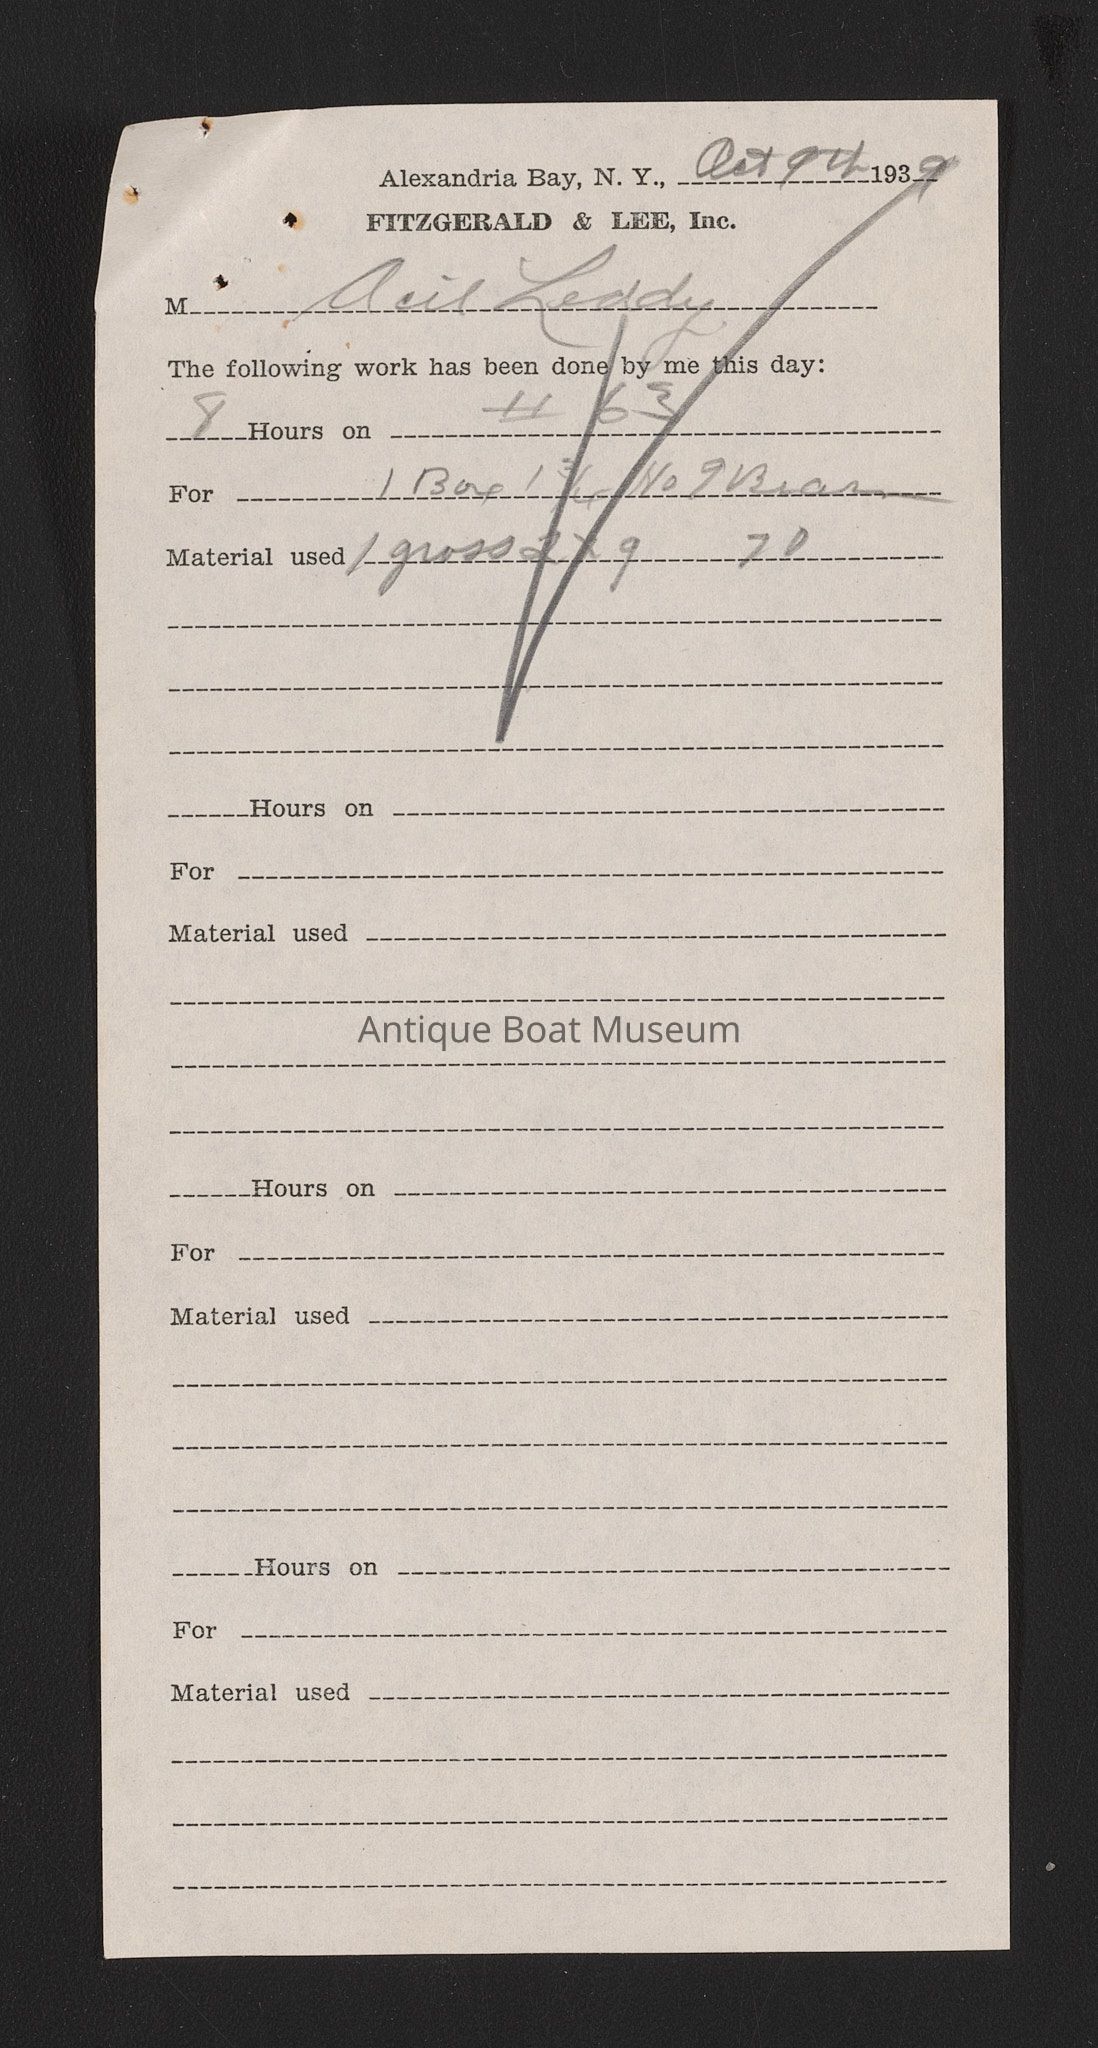 Alexandria Bay, N. Y., Oct 9th 1939
FITZGERALD & LEE, Inc.
M Leddy
The following work has been done by me this day:
8 Hours on # 63
For 1 Box 1 3/4 No 9
Material used 1 gross 2 x 9 70
Hours on
For
Material used
Antique Boat Museum
Hours on
For
Material used
Hours on
For
Material used